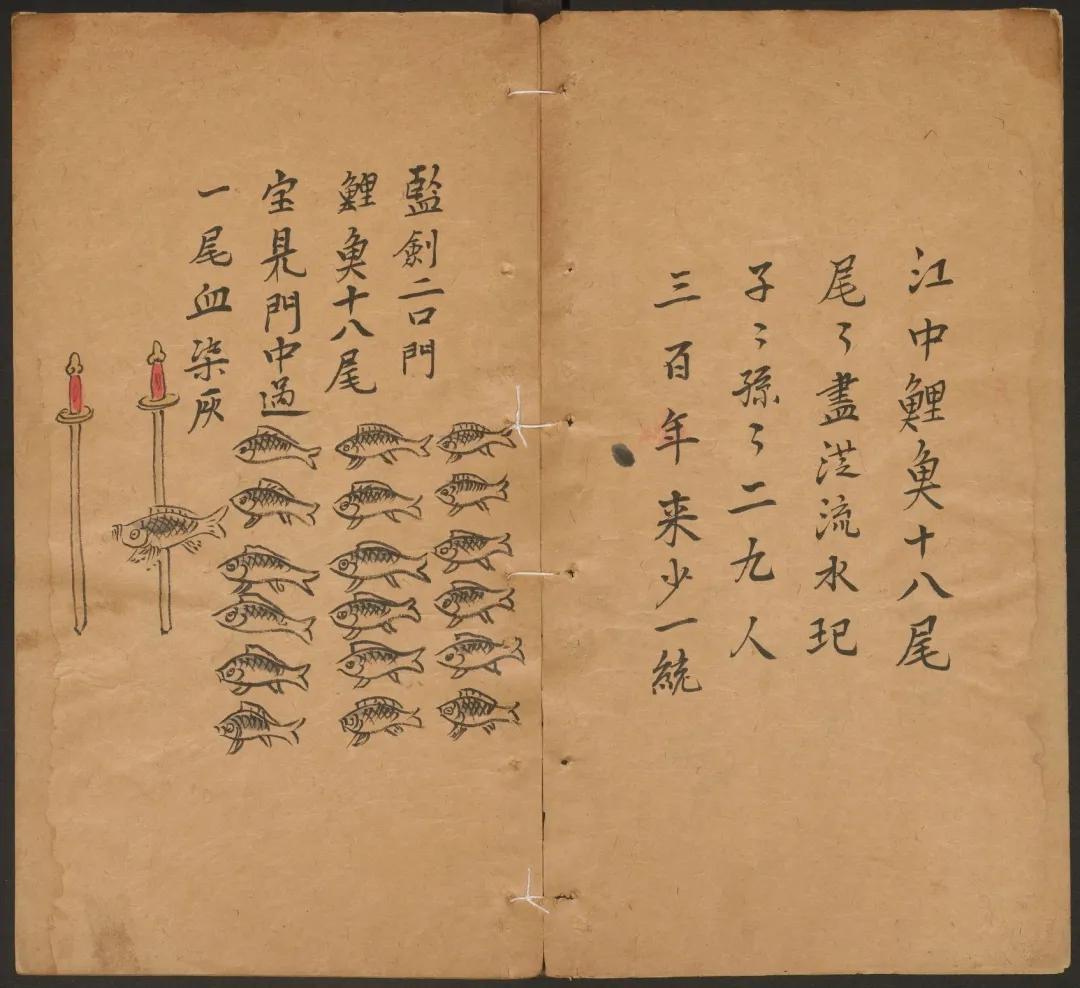 江中鯉魚十八尾
尾々盡洪流水玘
子々孫々二九人
三百年来少一統
監劍二口門
鯉魚十八尾
宝見門中過
一尾血染灰